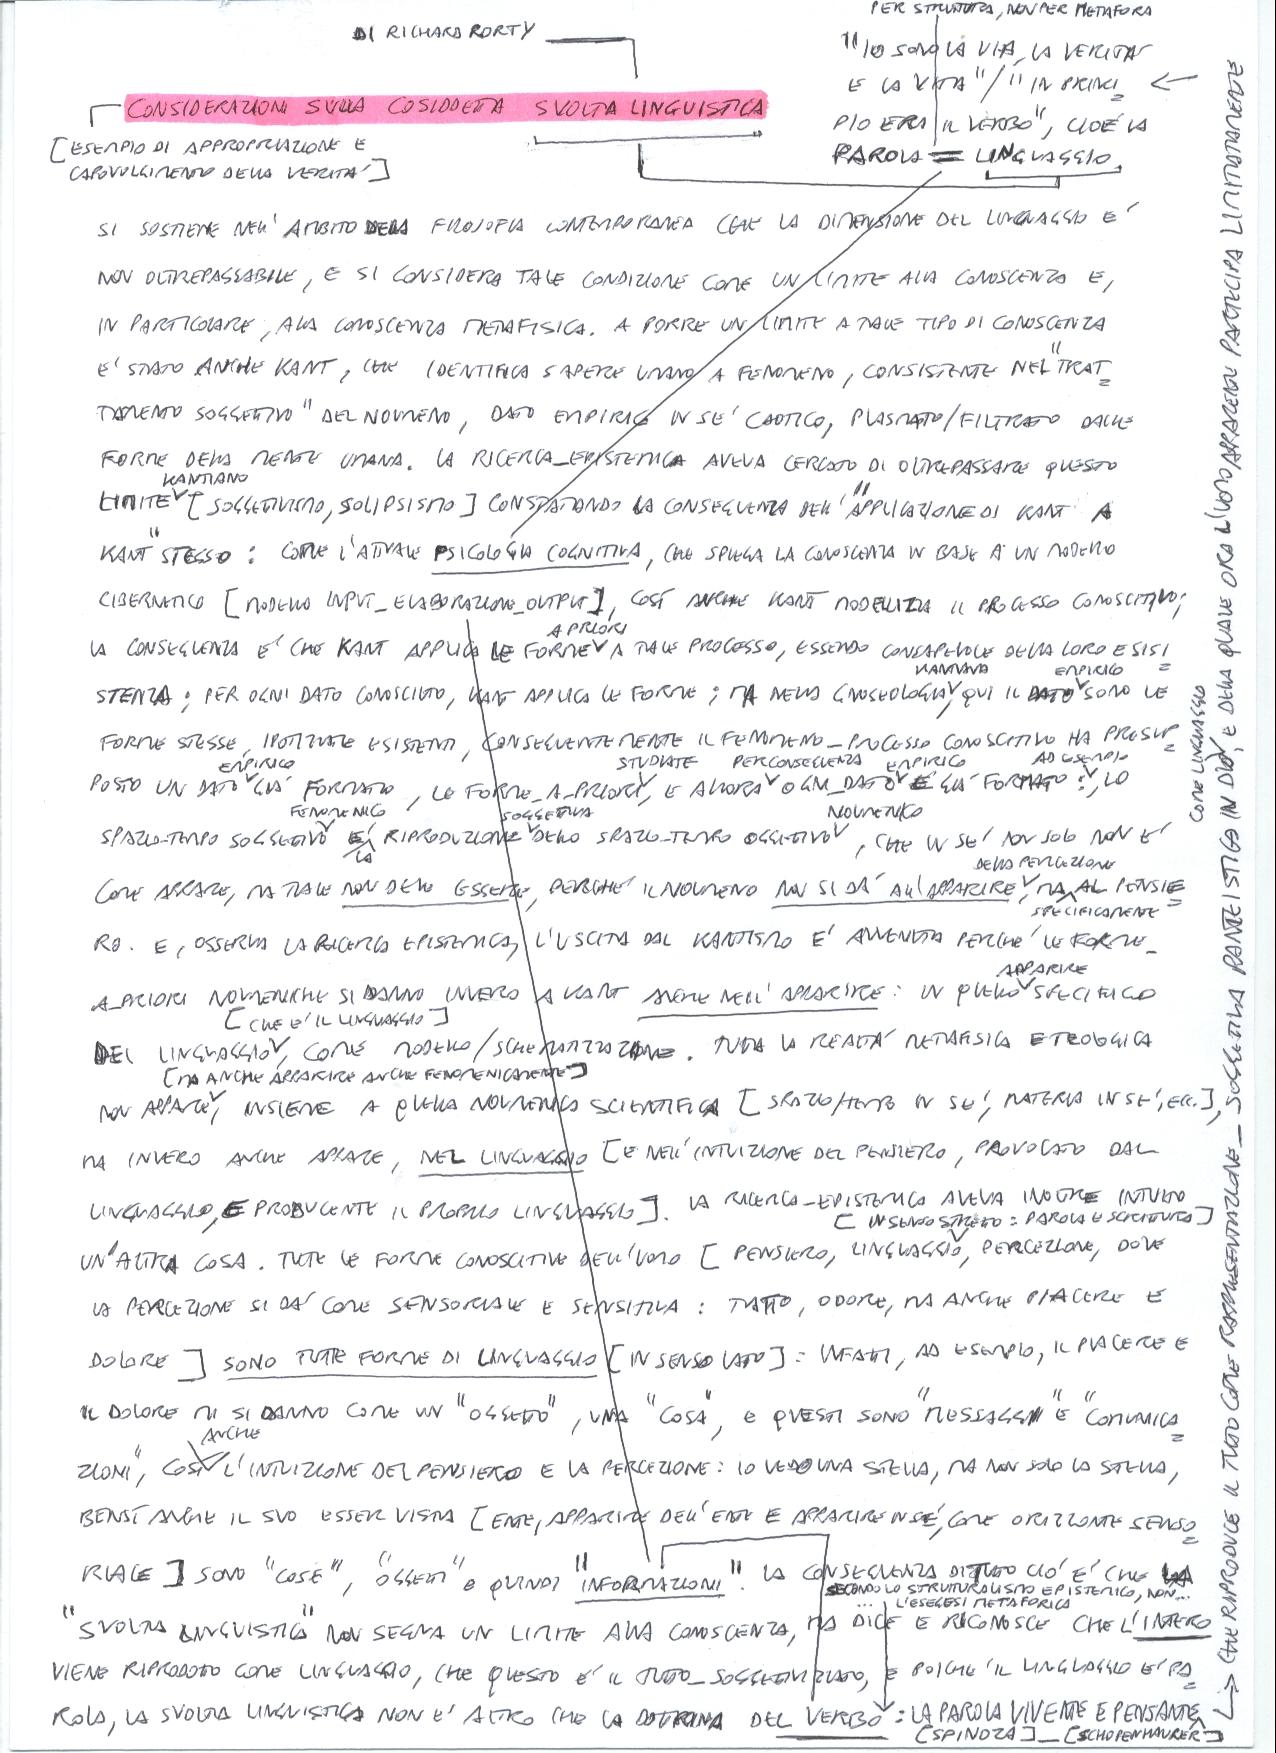 PER STRUTTURA, NON PER METAFORA
DI RICHARD RORTY
"IO SONO LA VIA, LA VERITA'
E LA VITA"/"IN PRINCI=
PIO ERA IL VERBO", CIOÈ LA
PAROLA = LINGUAGGIO
CONSIDERAZIONI SULLA COSIDDETTA SVOLTA LINGUISTICA
[ESEMPIO DI APPROPRIAZIONE E
CAPOVOLGIMENTO DELLA VERITA']
SI SOSTIENE NELL'AMBITO DELLA FILOSOFIA CONTEMPORANEA CHE LA DIMENSIONE DEL LINGUAGGIO E'
NON OLTREPASSABILE, E SI CONSIDERA TALE CONDIZIONE COME UN LIMITE ALLA CONOSCENZA E,
IN PARTICOLARE, ALLA CONOSCENZA METAFISICA. A PORRE UN LIMITE A TALE TIPO DI CONOSCENZA
E' STATO ANCHE KANT, CHE IDENTIFICA SAPERE UMANO A FENOMENO, CONSISTENTE NEL "TRAT=
TAMENTO SOGGETTIVO" DEL NOUMENO, DATO EMPIRICO IN SE' CAOTICO, PLASMATO/FILTRATO DALLE
FORME DELLA MENTE UMANA. LA RICERCA_EPISTEMICA AVEVA CERCATO DI OLTREPASSARE QUESTO
KANTIANO
LIMITE [SOGGETTIVISMO, SOLIPSISMO] CONSTATANDO LA CONSEGUENZA DELL'"APPLICAZIONE DI KANT A
KANT" STESSO: COME L'ATTUALE PSICOLOGIA COGNITIVA, CHE SPIEGA LA CONOSCENZA IN BASE A UN MODELLO
CIBERNETICO [MODELLO INPUT_ELABORAZIONE_OUTPUT], COSÌ ANCHE KANT MODELLIZZA IL PROCESSO CONOSCITIVO;
A PRIORI
LA CONSEGUENZA E' CHE KANT APPLICA LE FORME A TALE PROCESSO, ESSENDO CONSAPEVOLE DELLA LORO ESISI=
KANTIANA EMPIRICO
STENZA; PER OGNI DATO CONOSCIUTO, KANT APPLICA LE FORME; MA NELLA GNOSEOLOGIA, QUI IL DATO SONO LE
FORME STESSE, IPOTIZZATE ESISTENTI, CONSEGUENTEMENTE IL FENOMENO_PROCESSO CONOSCITIVO HA PRESUP=
EMPIRICO STUDIATE PER CONSEGUENZA EMPIRICO AD ESEMPIO
POSTO UN DATO GIÀ FORMATO, LE FORME_A_PRIORI, E ALLORA OGNI_DATO E' GIÀ FORMATO:, LO
FENOMENICO SOGGETTIVA NOUMENICO
SPAZIO-TEMPO SOGGETTIVO E' LA RIPRODUZIONE DELLO SPAZIO-TEMPO OGGETTIVO, CHE IN SE' NON SOLO NON E'
DELLA PERCEZIONE
COME APPARE, MA TALE NON DEVE ESSERE, PERCHE' IL NOUMENO NON SI DÀ ALL'APPARIRE, MA AL PENSIE=
SPECIFICAMENTE
RO. E, OSSERVA LA RICERCA EPISTEMICA, L'USCITA DAL KANTISMO E' AVVENUTA PERCHE' LE FORME_
APPARIRE
A_PRIORI NOUMENICHE SI DANNO INVERO A KANT ANCHE NELL'APPARIRE: IN QUELLO SPECIFICO
[CHE E' IL LINGUAGGIO]
DEL LINGUAGGIO, COME MODELLO/SCHEMATIZZAZIONE. TUTTA LA REALTÀ METAFISICA E TEOLOGICA
[MA ANCHE APPARIRE ANCHE FENOMENICAMENTE]
NON APPARE, INSIEME A QUELLA NOUMENICA SCIENTIFICA [SPAZIO/TEMPO IN SE', MATERIA IN SE', ECC.],
MA INVERO ANCHE APPARE, NEL LINGUAGGIO [E NELL'INTUIZIONE DEL PENSIERO, PROVOCATO DAL
LINGUAGGIO, E PRODUCENTE IL PROPRIO LINGUAGGIO]. LA RICERCA_EPISTEMICA AVEVA INOLTRE INTUITO
[IN SENSO STRETTO: PAROLA E SCRITTURA]
UN'ALTRA COSA. TUTTE LE FORME CONOSCITIVE DELL'UOMO [PENSIERO, LINGUAGGIO, PERCEZIONE, DOVE
LA PERCEZIONE SI DA' COME SENSORIALE E SENSITIVA: TATTO, ODORE, MA ANCHE PIACERE E
DOLORE] SONO TUTTE FORME DI LINGUAGGIO [IN SENSO LATO]: INFATTI, AD ESEMPIO, IL PIACERE E
IL DOLORE MI SI DANNO COME UN "OGGETTO", UNA "COSA", E QUESTI SONO "MESSAGGI" E "COMUNICA=
ANCHE
ZIONI", COSÌ L'INTUIZIONE DEL PENSIERO E LA PERCEZIONE: IO VEDO UNA STELLA, MA NON SOLO LA STELLA,
BENSÌ ANCHE IL SUO ESSER VISTA [ENTE, APPARIRE DELL'ENTE E APPARIRE IN SE', COME ORIZZONTE SENSO=
RIALE] SONO "COSE", "OGGETTI" E QUINDI "INFORMAZIONI". LA CONSEGUENZA DI TUTTO CIÒ E' CHE LA
SECONDO LO STRUTTURALISMO EPISTEMICO, NON...
... L'ESEGESI METAFORICA
"SVOLTA LINGUISTICA" NON SEGNA UN LIMITE ALLA CONOSCENZA, MA DICE E RICONOSCE CHE L'INTERO
VIENE RIPRODOTTO COME LINGUAGGIO, CHE QUESTO E' IL TUTTO_SOGGETTIVIZZATO, E POICHE' IL LINGUAGGIO E' PA=
ROLA, LA SVOLTA LINGUISTICA NON E' ALTRO CHE LA DOTTRINA DEL VERBO: LA PAROLA VIVENTE E PENSANTE,
[SPINOZA]_[SCHOPENHAUER]
CHE RIPRODUCE IL TUTTO COME RAPPRESENTAZIONE_SOGGETTIVA PANTEISTICA IN DIO, E DELLA QUALE ORA L'UOMO APPARENTE PARTECIPA LIMITATAMENTE
COME LINGUAGGIO